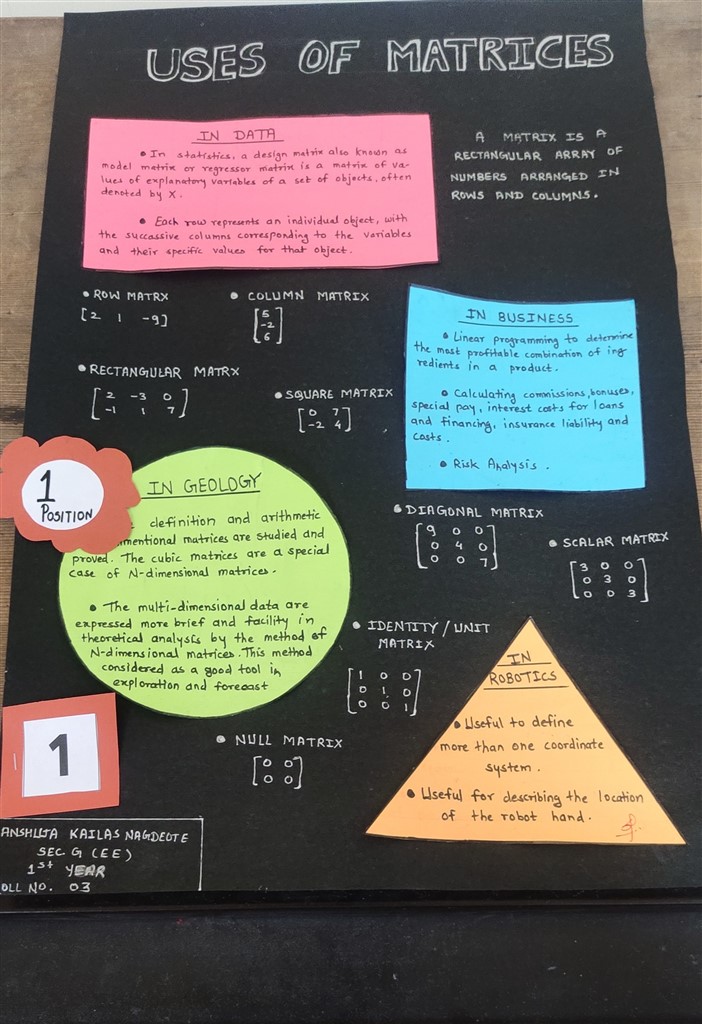 USES OF MATRICES
IN DATA
• In statistics, a design matrix also known as
model matrix or regressor matrix is a matrix of va-
lues of explanatory variables of a set of objects, often
denoted by X.
• Each row represents an individual object, with
the successive columns corresponding to the variables
and their specific values for that object.
A MATRIX IS A
RECTANGULAR ARRAY OF
NUMBERS ARRANGED IN
ROWS AND COLUMNS.
• ROW MATRX
[2 1 -9]
• COLUMN MATRIX
5
-2
6
• RECTANGULAR MATRX
2 -3 0
-1 1 7
• SQUARE MATRIX
0 7
-2 4
IN BUSINESS
• Linear programming to determine
the most profitable combination of ing
redients in a product.
• Calculating commissions, bonuses,
special pay, interest costs for loans
and financing, insurance liability and
costs.
• Risk Analysis.
1
POSITION
IN GEOLOGY
definition and arithmetic
mentional matrices are studied and
proved. The cubic matrices are a special
case of N-dimensional matrices.
• The multi-dimensional data are
expressed more brief and facility in
theoretical analysis by the method of
N-dimensional matrices. This method
considered as a good tool in
exploration and forecast
• DIAGONAL MATRIX
9 0 0
0 4 0
0 0 7
• SCALAR MATRIX
3 0 0
0 3 0
0 0 3
• IDENTITY / UNIT
MATRIX
1 0 0
0 1 0
0 0 1
IN
ROBOTICS
• Useful to define
more than one coordinate
system.
• Useful for describing the location
of the robot hand.
• NULL MATRIX
0 0
0 0
1
ANSHUTA KAILAS NAGDEOTE
SEC G (EE)
1st YEAR
OLL NO. 03